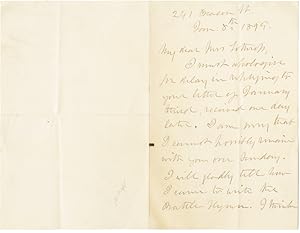 241 Beacon St.
Jan. 8th 1899.
My dear Mrs Lothrop,
I must apologise
for delay in replying to
your letter of January
third, received one day
later. I am sorry that
I cannot possibly remain
with you over Sunday.
I will gladly tell how
I came to write the
Battle Hymn. I